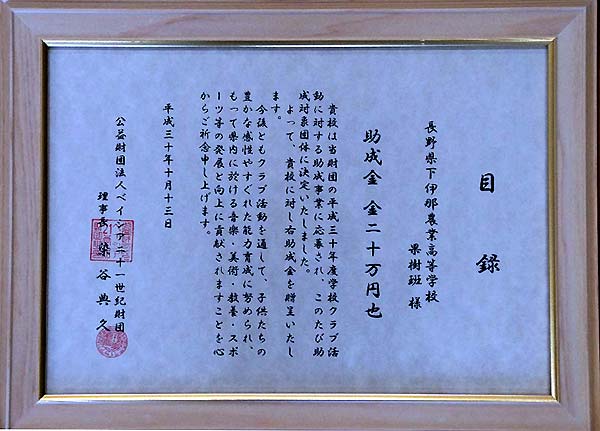 目録
長野県下伊那農業高等学校
果樹班 様
助成金 金二十万円也
貴校は当財団の平成三十年度学校クラブ活
動に対する助成事業に応募され、このたび助
成対象団体に決定いたしました。
よって、貴校に対し右助成金を贈呈いたし
ます。
今後ともクラブ活動を通して、子供たちの
豊かな感性やすぐれた能力育成に努められ、
もって県内に於ける音楽・美術・教養・スポ
ーツ等の発展と向上に貢献されますことを心
からご祈念申し上げます。
平成三十年十月十三日
公益財団法人ベイシア二十一世紀財団
理事長 染谷典久